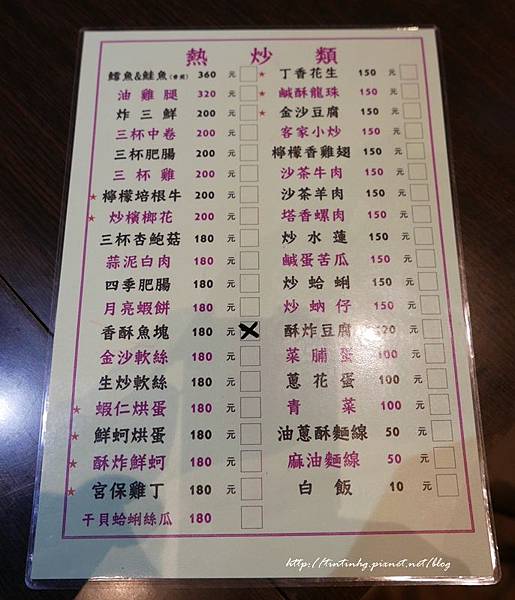 熱炒類
鱈魚&鮭魚 360 元
油雞腿 320 元
炸三鮮 200 元
三杯中卷 200 元
三杯肥腸 200 元
三杯雞 200 元
★檸檬培根牛 200 元
★炒檳榔花 200 元
三杯杏鮑菇 180 元
蒜泥白肉 180 元
四季肥腸 180 元
月亮蝦餅 180 元
香酥魚塊 180 元
金沙軟絲 180 元
生炒軟絲 180 元
★蝦仁烘蛋 180 元
★鮮蚵烘蛋 180 元
★酥炸鮮蚵 180 元
★宮保雞丁 180 元
干貝蛤蜊絲瓜 180
★丁香花生 150 元
★鹹酥龍珠 150 元
★金沙豆腐 150 元
客家小炒 150 元
檸檬香雞翅 150 元
沙茶牛肉 150 元
沙茶羊肉 150 元
塔香螺肉 150 元
炒水蓮 150 元
鹹蛋苦瓜 150 元
炒蛤蜊 150 元
炒蚋仔 150 元
酥炸豆腐 120 元
菜脯蛋 100 元
蔥花蛋 100 元
青菜 100 元
油蔥酥麵線 50 元
麻油麵線 50 元
白飯 10 元
http://tintinhg.pixnet.net/blog